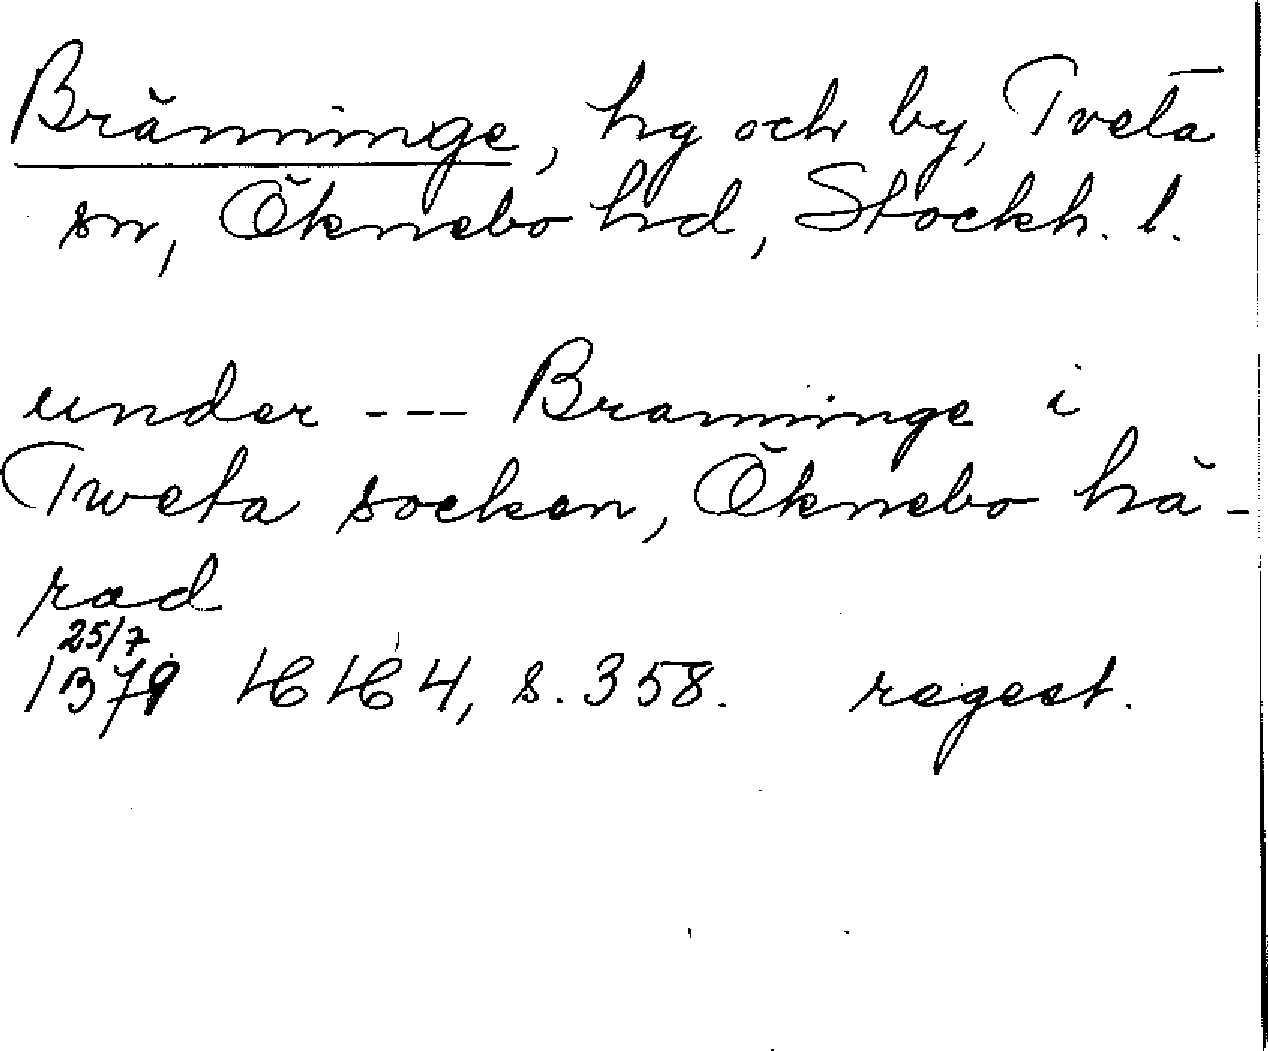 Bränninge, hg och by, Tveta
sn, Öknebo hd, Stockh. l.
under --- Branninge i
Tweta socken, Öknebo hä-
rad
25/7
1379 HH 4, s. 358. regest.